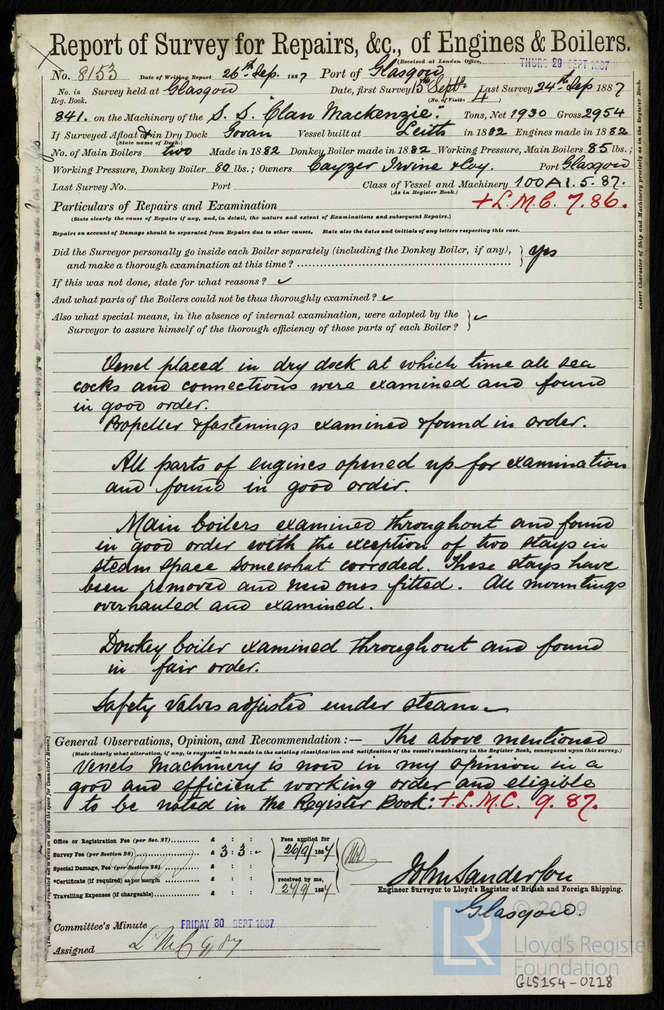 Report of Survey for Repairs, &c., of Engines & Boilers.
(Received at London Office, THURS 29 SEPT 1887
No. 8153 Date of Writing Report 26th Sep. 1887 Port of Glasgow
No. in Survey held at Glasgow Date, first Survey 15th Septr Last Survey 24th Sep 1887
Reg. Book. (No. of Visits 4)
841. on the Machinery of the S. S. "Clan Mackenzie". Tons, Net 1930 Gross 2954
If Surveyed Afloat & in Dry Dock Govan Vessel built at Leith in 1882 Engines made in 1882
(State name of Dock.)
No. of Main Boilers two Made in 1882 Donkey Boiler made in 1882 Working Pressure, Main Boilers 85 lbs.;
Working Pressure, Donkey Boiler 80 lbs.; Owners Cayzer Irvine & Coy. Port Glasgow
Last Survey No. Port Class of Vessel and Machinery 100A1. 5. 87.
(As in Register Book.)
Particulars of Repairs and Examination +L.M.C. 7.86.
(State clearly the cause of Repairs if any, and, in detail, the nature and extent of Examinations and subsequent Repairs.)
Repairs on account of Damage should be separated from Repairs due to other causes. State also the dates and initials of any letters respecting this case.
Did the Surveyor personally go inside each Boiler separately (including the Donkey Boiler, if any),
and make a thorough examination at this time? yes
If this was not done, state for what reasons? ✓
And what parts of the Boilers could not be thus thoroughly examined? ✓
Also what special means, in the absence of internal examination, were adopted by the
Surveyor to assure himself of the thorough efficiency of those parts of each Boiler? ✓
Vessel placed in dry dock at which time all sea
cocks and connections were examined and found
in good order.
Propeller & fastenings examined & found in order.
All parts of engines opened up for examination
and found in good order.
Main boilers examined throughout and found
in good order with the exception of two stays in
steam space somewhat corroded. These stays have
been removed and new ones fitted. All mountings
overhauled and examined.
Donkey boiler examined throughout and found
in fair order.
Safety valves adjusted under steam
General Observations, Opinion, and Recommendation :— The above mentioned
(State clearly what alteration, if any, is suggested to be made in the existing classification and notification of the vessel's machinery in the Register Book, consequent upon this survey.)
Vessels Machinery is now in my opinion in a
good and efficient working order and eligible
to be noted in the Register Book: +L.M.C. 9. 87.
Office or Registration Fee (per Sec. 27) £ : :
Survey Fee (per Section 28) £ 3 : 3 : -
Special Damage, Fee (per Section 28) £ : :
*Certificate (if required) as per margin £ : :
Travelling Expenses (if chargeable) £ : :
Fees applied for
26/9/1887
received by me,
27/9/1887
John Sanderson
Engineer Surveyor to Lloyd's Register of British and Foreign Shipping.
Glasgow.
Committee's Minute FRIDAY 30 SEPT 1887
Assigned L M C 9, 87
Insert Character of Ship and Machinery precisely as in the Register Book.
LR
© 2019
Lloyd's Register
Foundation
GLS154-0218